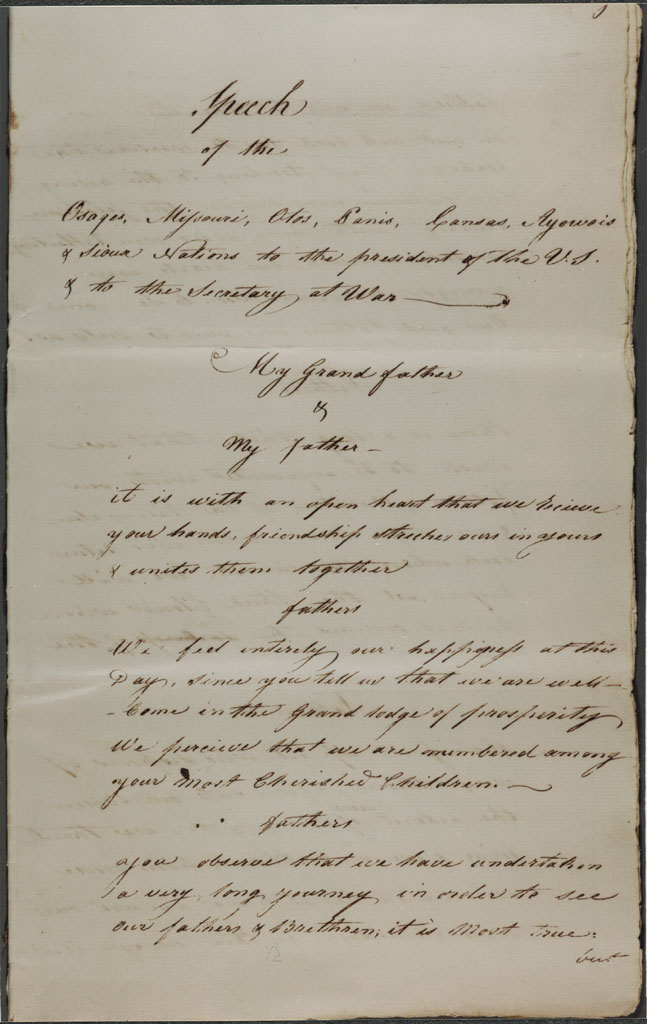 Speech
of the
Osages, Missouri, Otos, Panis, Cansas, Ayowois
& Sioux Nations to the president of the U.S.
& to the Secretary at War
My Grand father
&
My father -
it is with an open heart that we recieve
your hands, friendship streches ours in yours
& unites them together
fathers
We feel entirely our happiness at this
Day, since you tell us that we are well-
-Come in the Grand lodge of prosperity
We perceive that we are numbered among
your Most Cherished Children.
fathers
you observe that we have undertaken
a very long journey in order to see
our fathers & Brethren; it is Most true:
but